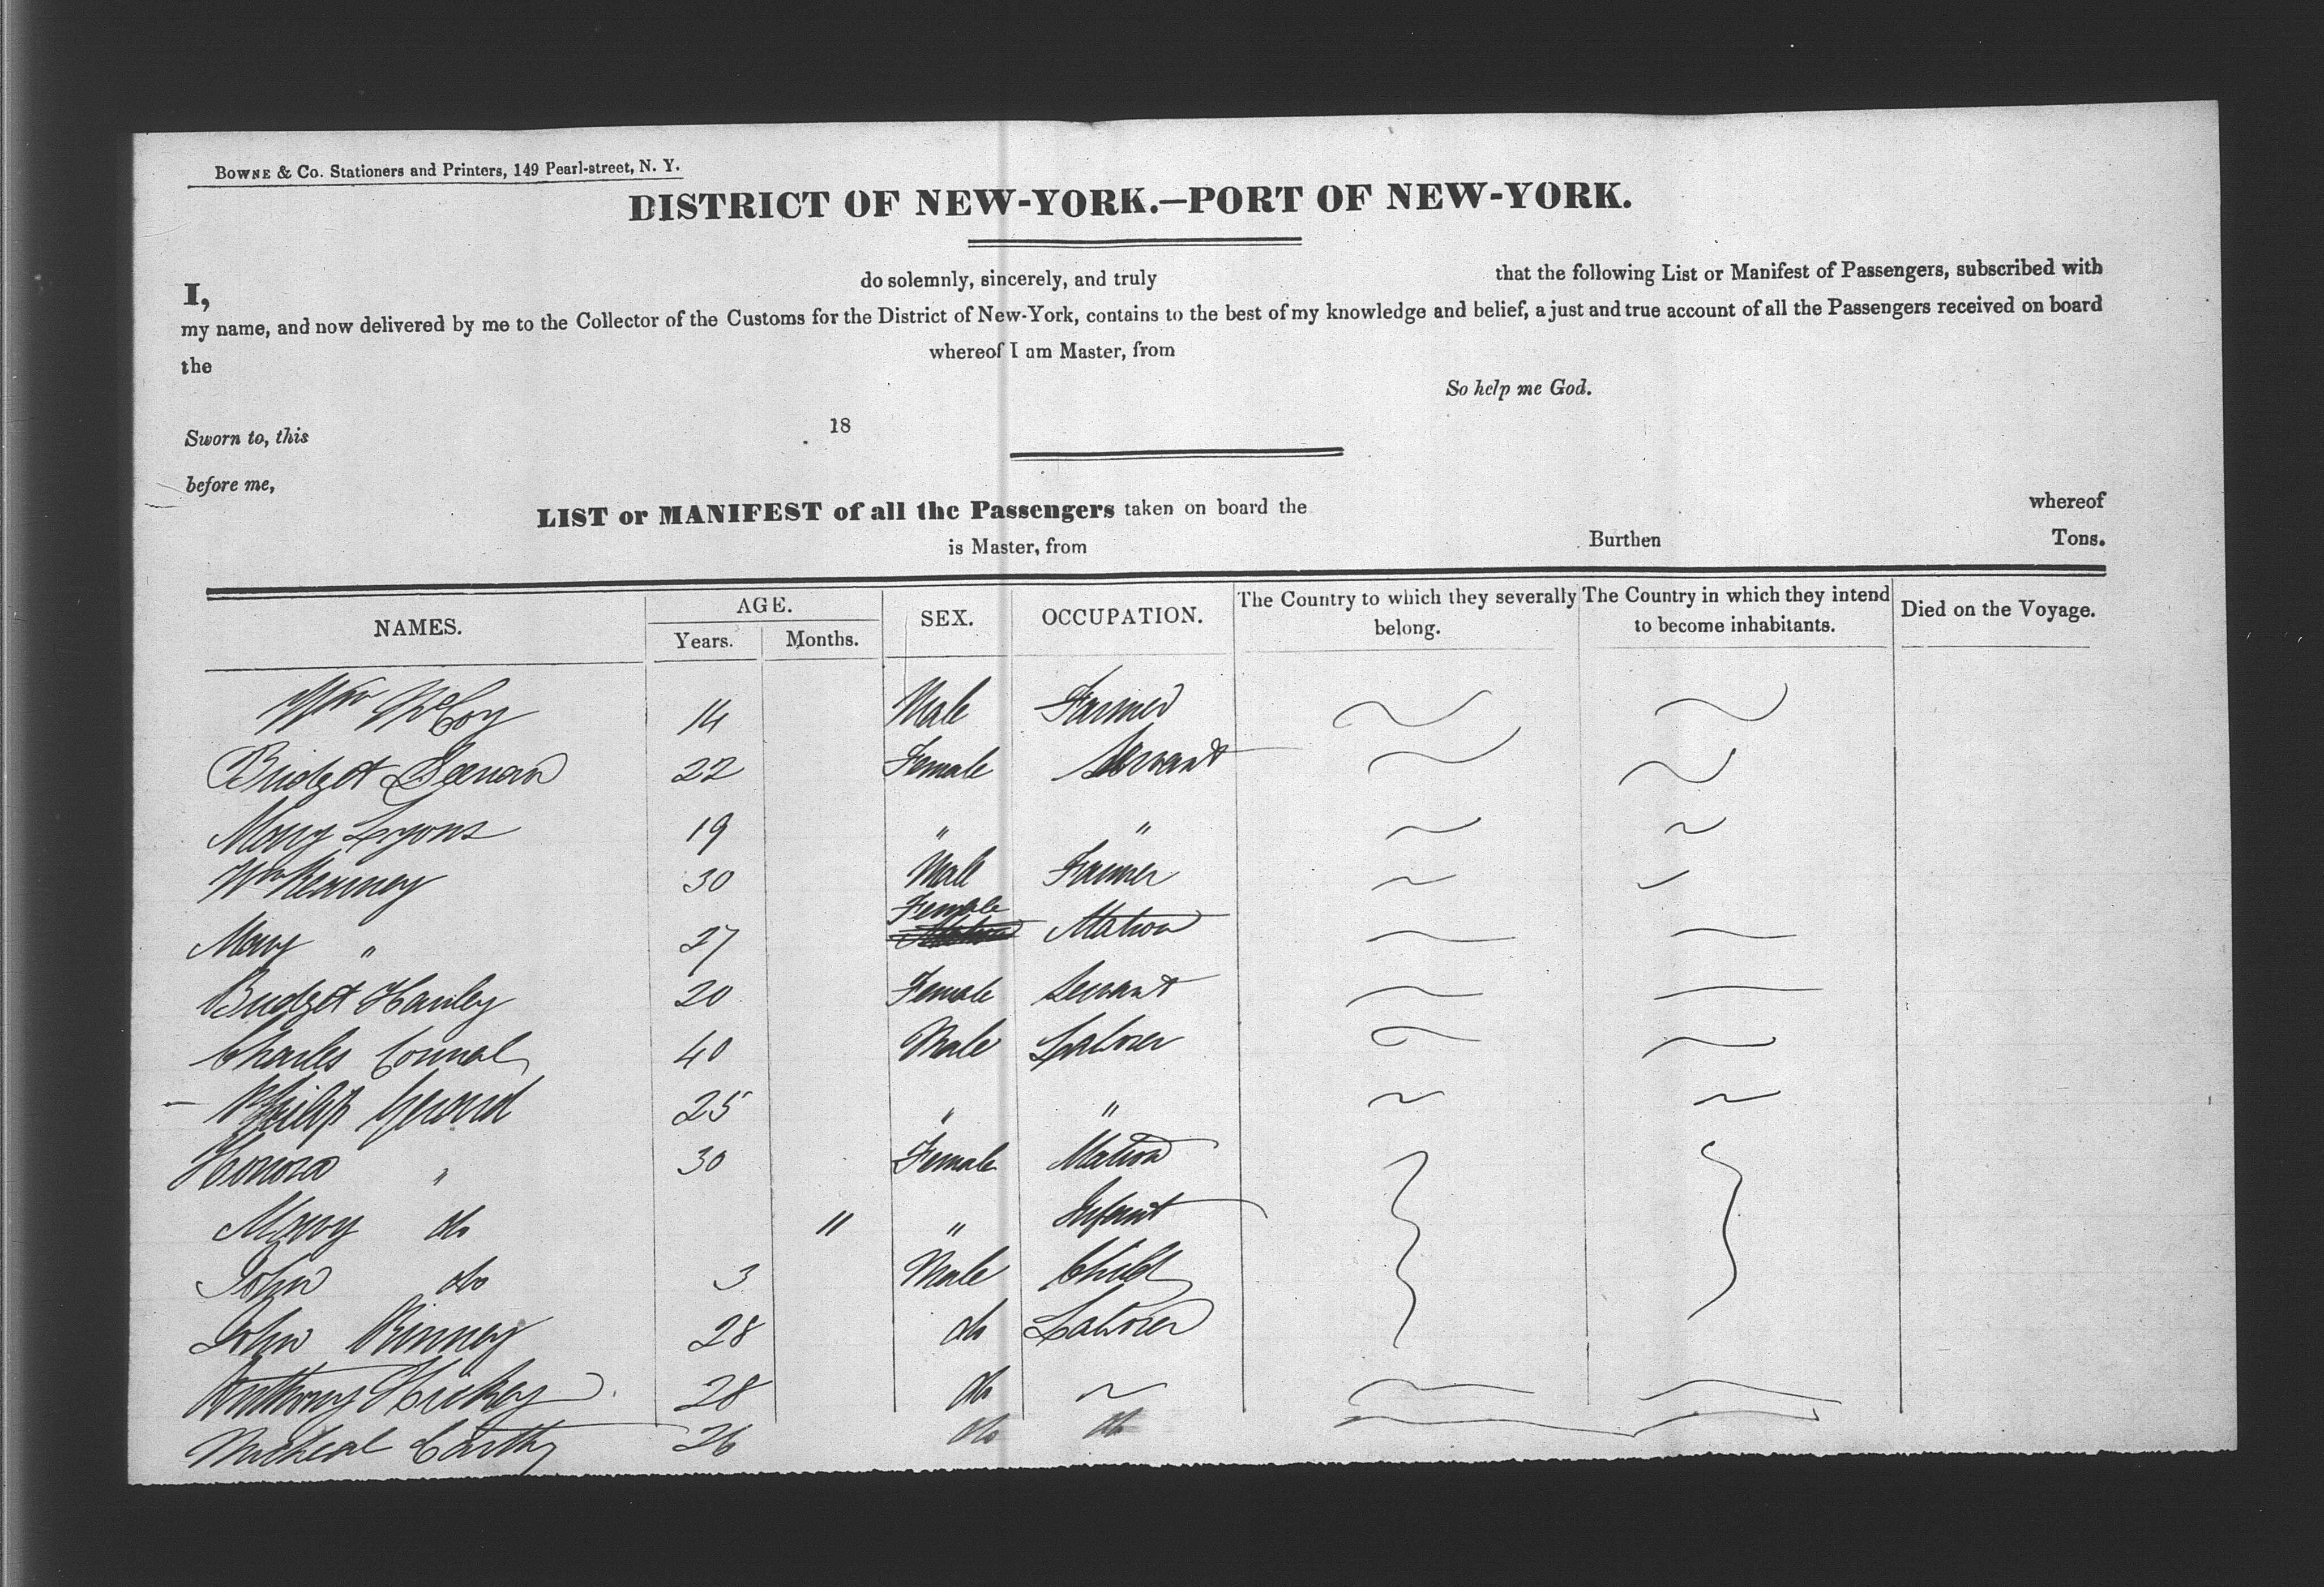 BOWNE & CO. Stationers and Printers, 149 Pearl-street, N. Y.
DISTRICT OF NEW-YORK.—PORT OF NEW-YORK.
I, do solemnly, sincerely, and truly that the following List or Manifest of Passengers, subscribed with
my name, and now delivered by me to the Collector of the Customs for the District of New-York, contains to the best of my knowledge and belief, a just and true account of all the Passengers received on board
the whereof I am Master, from
So help me God.
Sworn to, this 18
before me,
LIST or MANIFEST of all the Passengers taken on board the whereof
is Master, from Burthen Tons.
NAMES. AGE. Years. Months. SEX. OCCUPATION. The Country to which they severally belong. The Country in which they intend to become inhabitants. Died on the Voyage.
Wm McCoy 14 Male Farmer
Bridget 22 Female Servant
Mary Lyons 19 " "
Wm Kearney 30 Male Farmer
Mary " 27 Female Matron
Bridget Hanley 20 Female Servant
Charles Connal 40 Male Laborer
Philip Gerard 25 " "
Honora " 30 Female Matron
Mary do " " Infant
John do 3 Male Child
John Kinney 28 do Laborer
Anthony Hickey 28 do
Micheal Carthy 26 do do